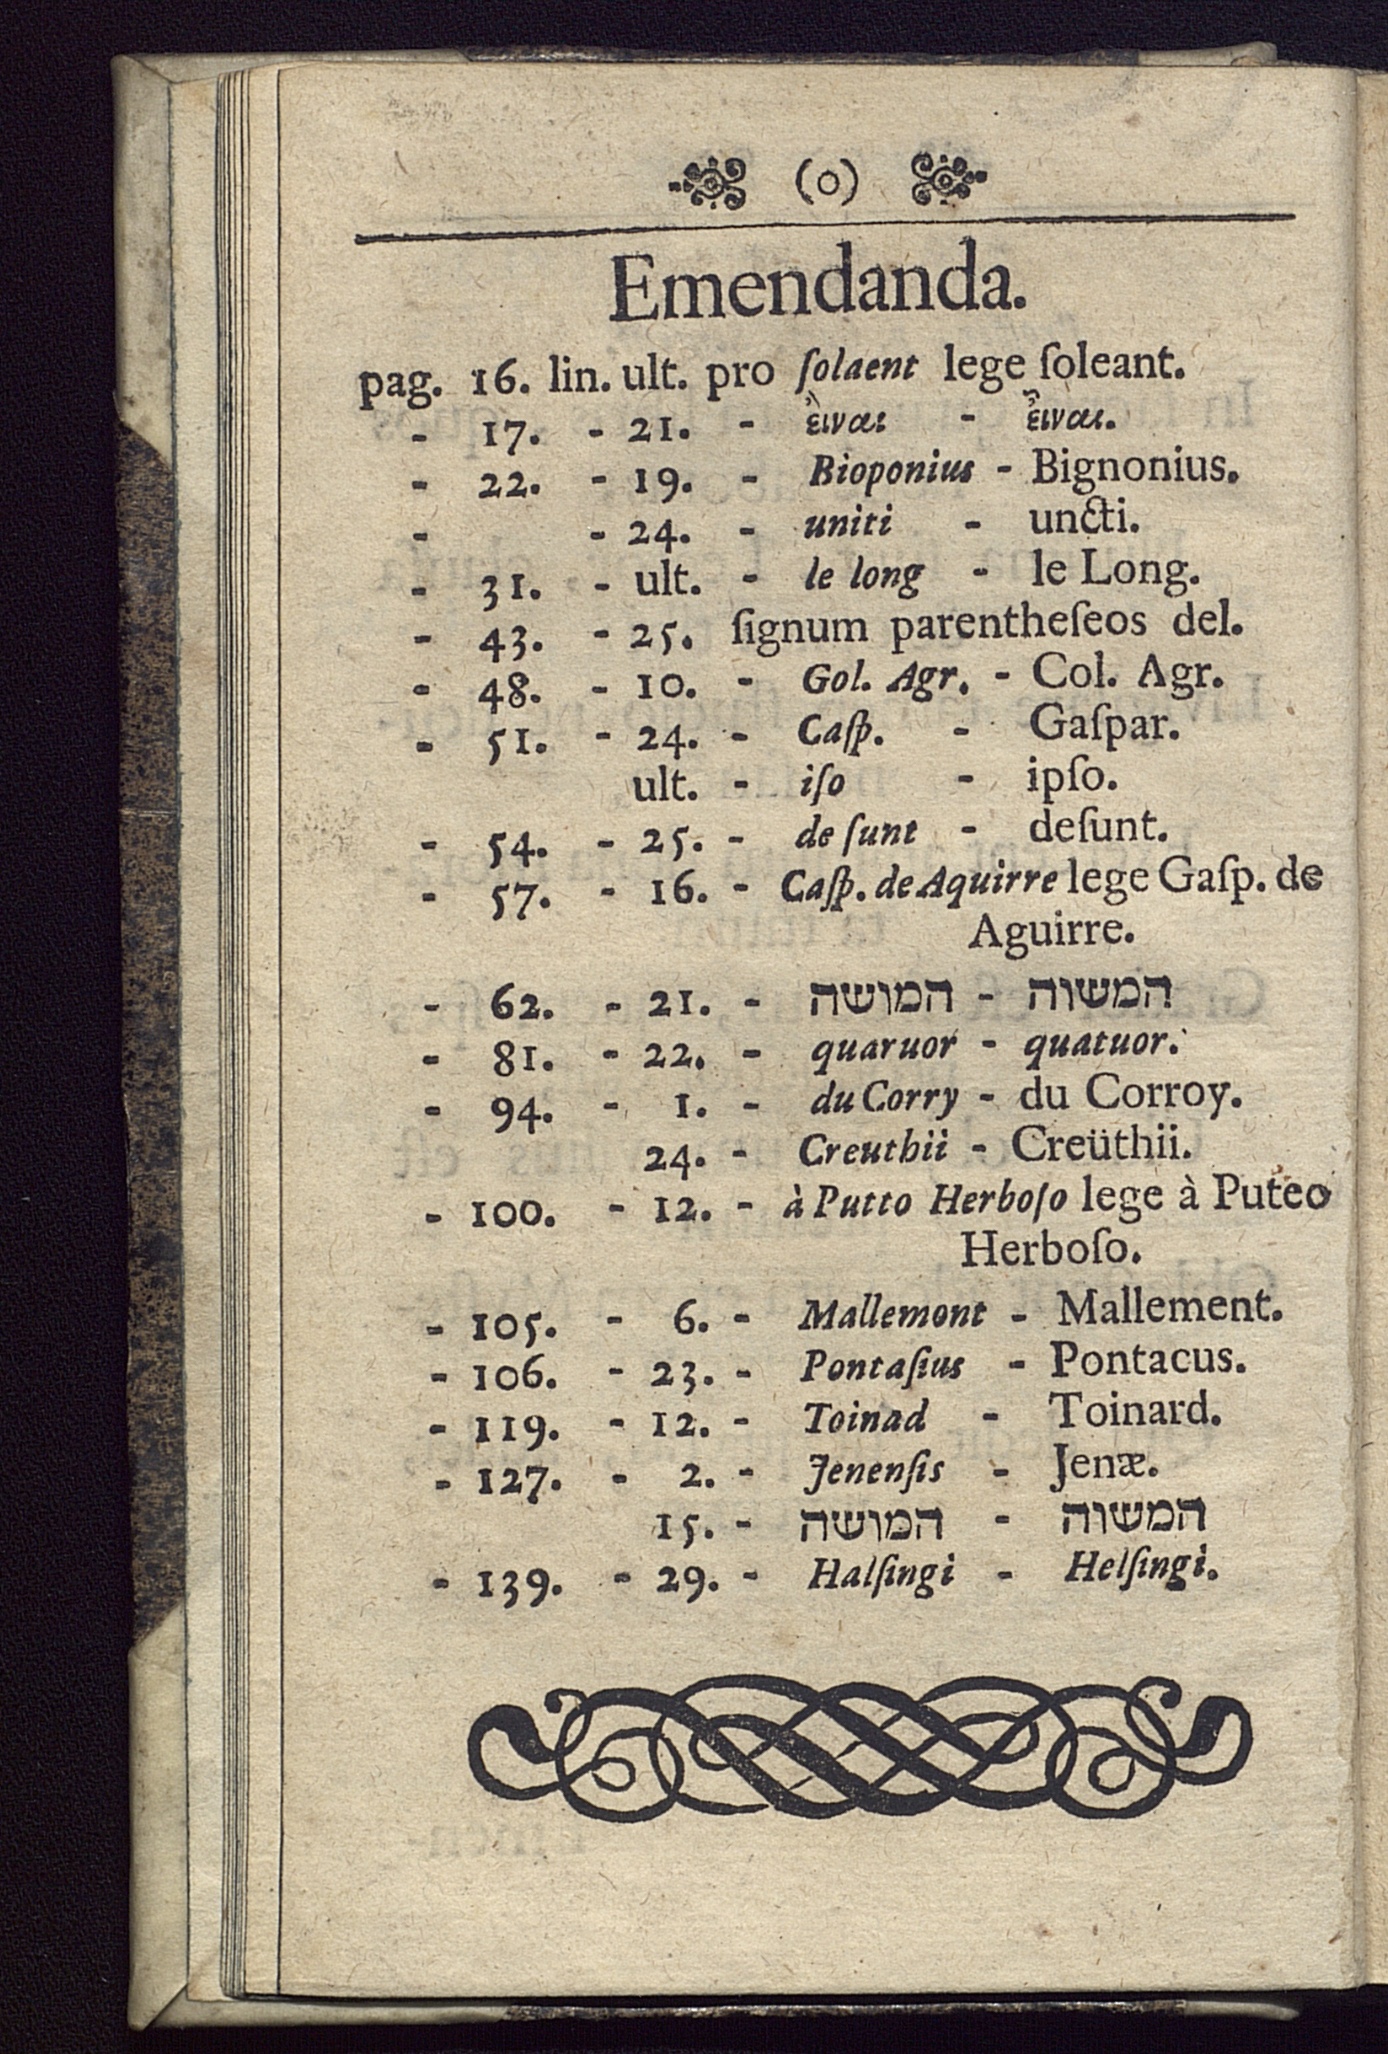 (o)
Emendanda.
pag. 16. lin. ult. pro ſolaent lege ſoleant.
- 17. - 21. - ἒιναι - ἖ιναι.
- 22. - 19. - Bioponius - Bignonius.
- - 24. - uniti - uncti.
- 31. - ult. - le long - le Long.
- 43. - 25. ſignum parentheſeos del.
- 48. - 10. - Gol. Agr. - Col. Agr.
- 51. - 24. - Caſp. - Gaſpar.
ult. - iſo - ipſo.
- 54. - 25. - de ſunt - deſunt.
- 57. - 16. - Caſp. de Aquirre lege Gaſp. de
Aguirre.
- 62. - 21. - המושה - המשוה
- 81. - 22. - quaruor - quatuor.
- 94. - 1. - du Corry - du Corroy.
24. - Creuthii - Creüthii.
- 100. - 12. - à Putto Herboſo lege à Puteo
Herboſo.
- 105. - 6. - Mallemont - Mallement.
- 106. - 23. - Pontaſius - Pontacus.
- 119. - 12. - Toinad - Toinard.
- 127. - 2. - Jenenſis - Jenæ.
15. - המושה - המשוה
- 139. - 29. - Halſingi - Helſingi.